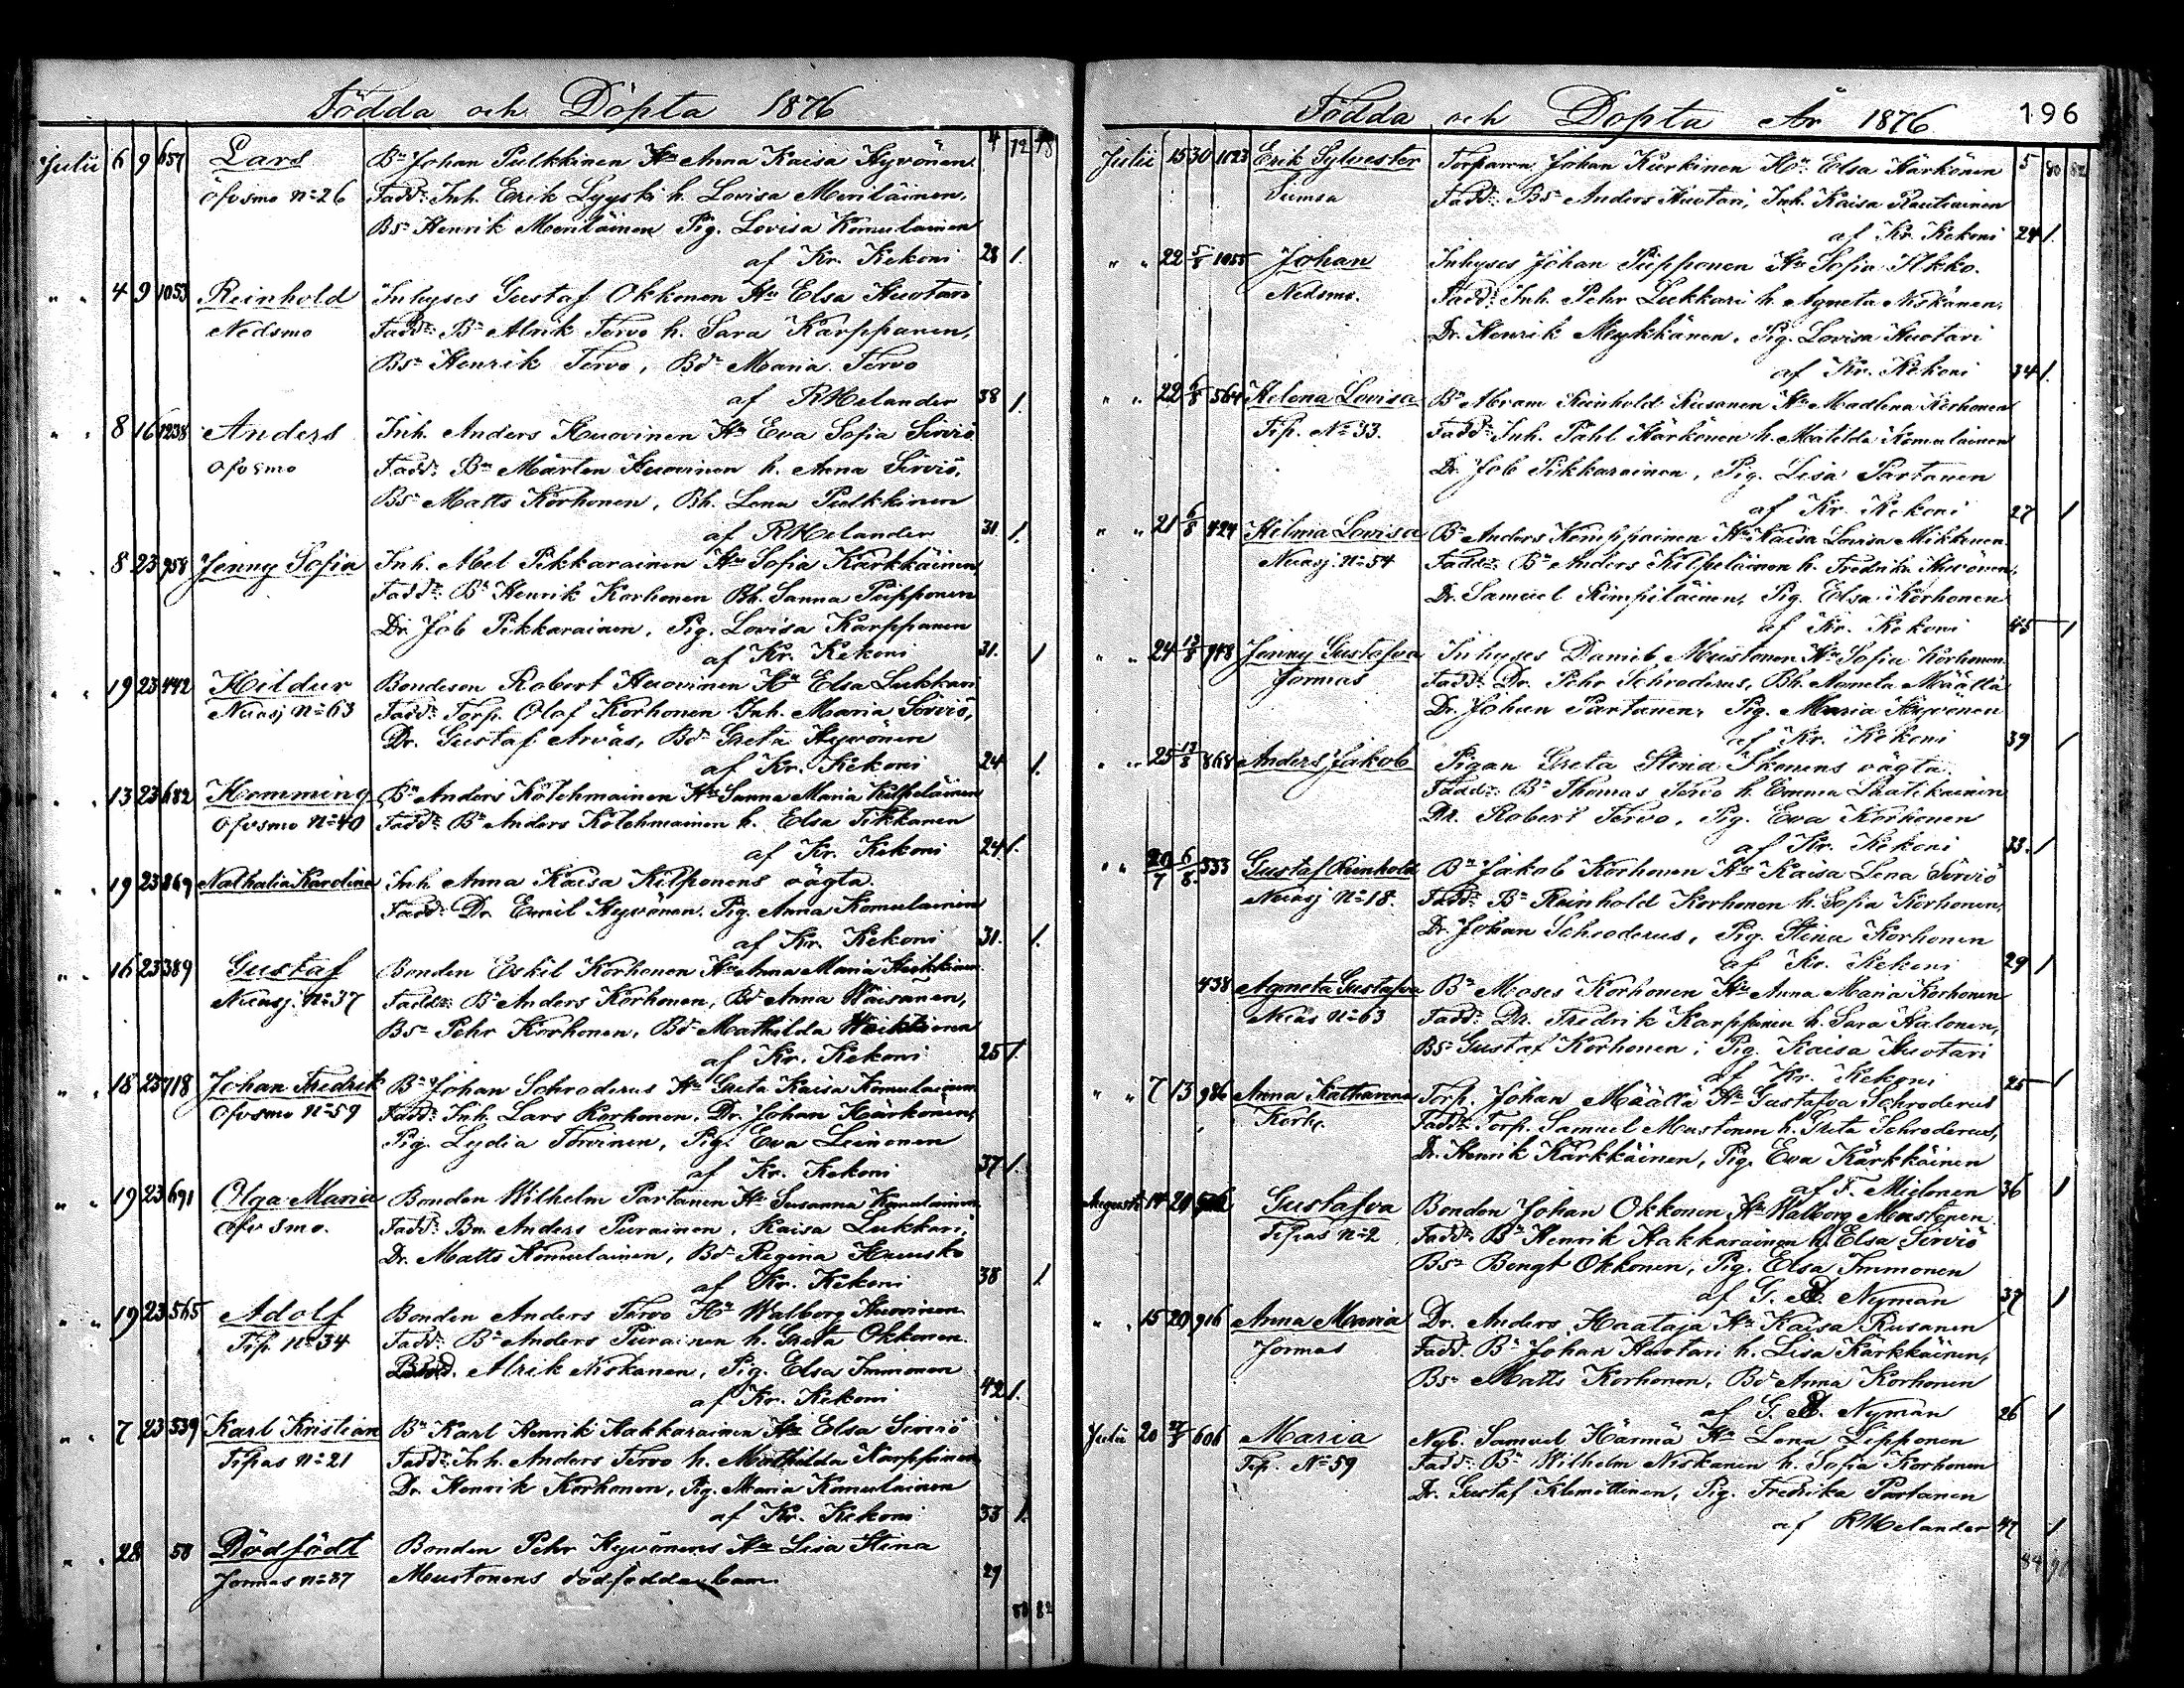 Födda och Döpta 1876
4 72 78
Julii 6 9 657 Lars Bn Johan Pulkkinen Hu Anna Kaisa Hyvönen.
Öfvsmo No 26 Fadd: Inh. Erik Lyyski h. Lovisa Meriläinen,
Bs Henrik Meriläinen Pig. Lovisa Komulainen
af Kr. Kekoni 28 1.
" " 4 9 1053 Reinhold Inhyses Gustaf Okkonen Hu Elsa Huotari
Nedsmo Fadd: Bn Alrik Tervo h. Sara Karppanen,
Bs Henrik Tervo, Bd Maria Tervo
af RHelander 38 1.
" " 8 16 1238 Anders Inh. Anders Huovinen Hu Eva Sofia Sirviö
Öfvsmo Fadd: Bn Mårten Huovinen h. Anna Sirviö,
Bs Matts Korhonen, Bh. Lena Pulkkinen
af RHelander 31. 1.
" " 8 23 958 Jenny Sofia Inh. Abel Pikkarainen Hu Sofia Karkkäinen
Fadd: Bn Henrik Korhonen Bh. Sanna Piipponen
Dr. Job Pikkarainen, Pig. Lovisa Karppanen
af Kr. Kekoni 31. 1
" " 19 23 442 Hildur Bondeson Robert Huovinen Hu Elsa Lukkari
Nuasj No 63 Fadd: Torp. Olof Korhonen Inh. Maria Sirviö,
Dr. Gustaf Arväs, Bd Greta Hyvönen
af Kr. Kekoni 24 1.
" " 13 23 682 Hemming Bn Anders Kölehmainen Hu Sanna Maria Kilpeläinen
Öfvsmo No 40 Fadd: Bn Anders Kölehmainen h. Elsa Tikkanen
af Kr. Kekoni 24 1.
" " 19 23 869 Nathalia Karolina Inh. Anna Kaisa Kilponens oägta.
Fadd: Dr. Emil Hyvönen. Pig. Anna Komulainen
af Kr. Kekoni 31. 1.
" " 16 23 389 Gustaf Bonden Eskil Korhonen Hu Anna Maria Heikkinen
Nuasj. No 37 Fadd: Bn Anders Korhonen, Bd Anna Wäisänen,
Bs Pehr Korhonen, Bd Mathilda
af Kr. Kekoni 25 1.
" " 18 23 718 Johan Fredrik Bn Johan Schroderus Hu Greta Kaisa Komulainen
Öfvsmo No 59 Fadd: Inh. Lars Korhonen. Dr. Johan Härkönen,
Pig. Lydia Torvinen, Pig. Eva Leinonen
af Kr. Kekoni 37 1.
" " 19 23 691 Olga Maria Bonden Wilhelm Partanen Hu Susanna Komulainen
Öfvsmo. Fadd: Bn Anders Piirainen, Kaisa Lukkari,
Dr. Matts Komulainen, Bd Regina Huusko
af Kr. Kekoni 38 1
" " 19 23 565 Adolf Bonden Anders Tervo Hu Walborg Huovinen
Tip. No 34 Fadd: Bn Anders Piirainen h. Greta Okkonen.
Alrik Niskanen, Pig. Elsa Immonen
af Kr. Kekoni 42 1.
" " 7 23 539 Karl Kristian Bn Karl Henrik Hakkarainen Hu Elsa Sirviö
Tipas No 21 Fadd: Inh. Anders Tervo h. Mathilda Karppinen
Dr. Henrik Korhonen, Pig. Maria Komulainen
af Kr. Kekoni 33 1.
" " 28 58 Dödfödt Bonden Pehr Hyvönens Hu Lisa Stina
Jormas No 37 Mustonens dödfödda barn. 29
80 82
Födda och Döpta År 1876. 196
5 80 82
Julii 15 30 1023 Erik Sylvester Torparen Johan Kurkinen Hu Elsa Härkönen
Sumsa Fadd: Bs Anders Huotari, Inh. Kaisa Rautiainen
af Kr. Kekoni 24 1.
" " 22 5/8 1055 Johan Inhyses Johan Piipponen Hu Sofia Ilkko.
Nedsmo. Fadd: Inh. Pehr Lukkari h. Agneta Niskanen,
Dr. Henrik Mykkänen, Pig. Lovisa Huotari
af Kr. Kekoni 34 1.
" " 22 6/8 564 Helena Lovisa Bn Abram Reinhold Rusanen Hu Madlena Korhonen
Tip. No 33. Fadd: Inh. Påhl Härkönen h. Matilda Komulainen
Dr. Job Pikkarainen, Pig. Lisa Partanen
af Kr. Kekoni 27 1
" " 21 6/8 424 Helma Lovisa Bn Anders Kemppainen Hu Kaisa Lovisa Mikkonen.
Nuasj. No 54 Fadd: Bn Anders Kilpeläinen h. Fredrika Hyvönen,
Dr. Samuel Rimpiläinen, Pig. Elsa Korhonen
af Kr. Kekoni 45 1
" " 24 13/8 948 Jenny Gustafva Inhyses Daniel Mustonen Hu Sofia Korhonen
Jormas Fadd: Dr. Pehr Schroderus, Bh. Agneta Määttä
Dr. Johan Partanen, Pig. Maria Hyvönen
af Kr. Kekoni 39 1
" " 25 13/8 868 Anders Jakob Pigan Greta Stina Ikonens oägta.
Fadd: Bn Thomas Tervo h. Emma Laatikainen
Dr. Robert Tervo, Pig. Eva Korhonen
af Kr. Kekoni 33. 1
" " 29/7 6/8. 333 Gustaf Reinhold Bn Jakob Korhonen Hu Kaisa Lena Sirviö
Nuasj No 18. Fadd: Bn Reinhold Korhonen h. Sofia Korhonen,
Dr. Johan Schroderus, Pig. Stina Korhonen
af Kr. Kekoni 29 1
438 Agneta Gustafva Bn Moses Korhonen Hu Anna Maria Korhonen
Nuas No 63 Fadd: Dr. Fredrik Karppinen h. Sara Halonen,
Bs Gustaf Korhonen, Pig. Kaisa Huotari
af Kr. Kekoni 25 1
" " 7 13 986 Anna Katharina Torp. Johan Määttä Hu Gustafva Schroderus
Korh. Fadd: Torp. Samuel Mustonen h. Greta Schroderus,
Dr. Henrik Kärkkäinen, Pig. Eva Kärkkäinen
af F. Mielonen 36 1
Augusti 14 20 Gustafva Bonden Johan Okkonen Hu Walborg Mustonen
Tipas No 2 Fadd: Bn Henrik Hakkarainen h. Elsa Sirviö
Bs Bengt Okkonen, Pig. Elsa Immonen
af G. Nyman 37 1
" " 15 20 916 Anna Maria Dr. Anders Haataja Hu Kaisa Rusanen
Jormas Fadd. Bn Johan Huotari h. Lisa Kärkkäinen,
Bs Matts Korhonen, Bd Anna Korhonen
af G. Nyman 26 1
Julii 20 27/8 606 Maria Nyb. Samuel Härmä Hu Lena Lipponen
Tip. No 59 Fadd: Bn Wilhelm Niskanen h. Sofia Korhonen
Dr. Gustaf Klemettinen, Pig. Fredrika Partanen
af RHelander 47 1
84